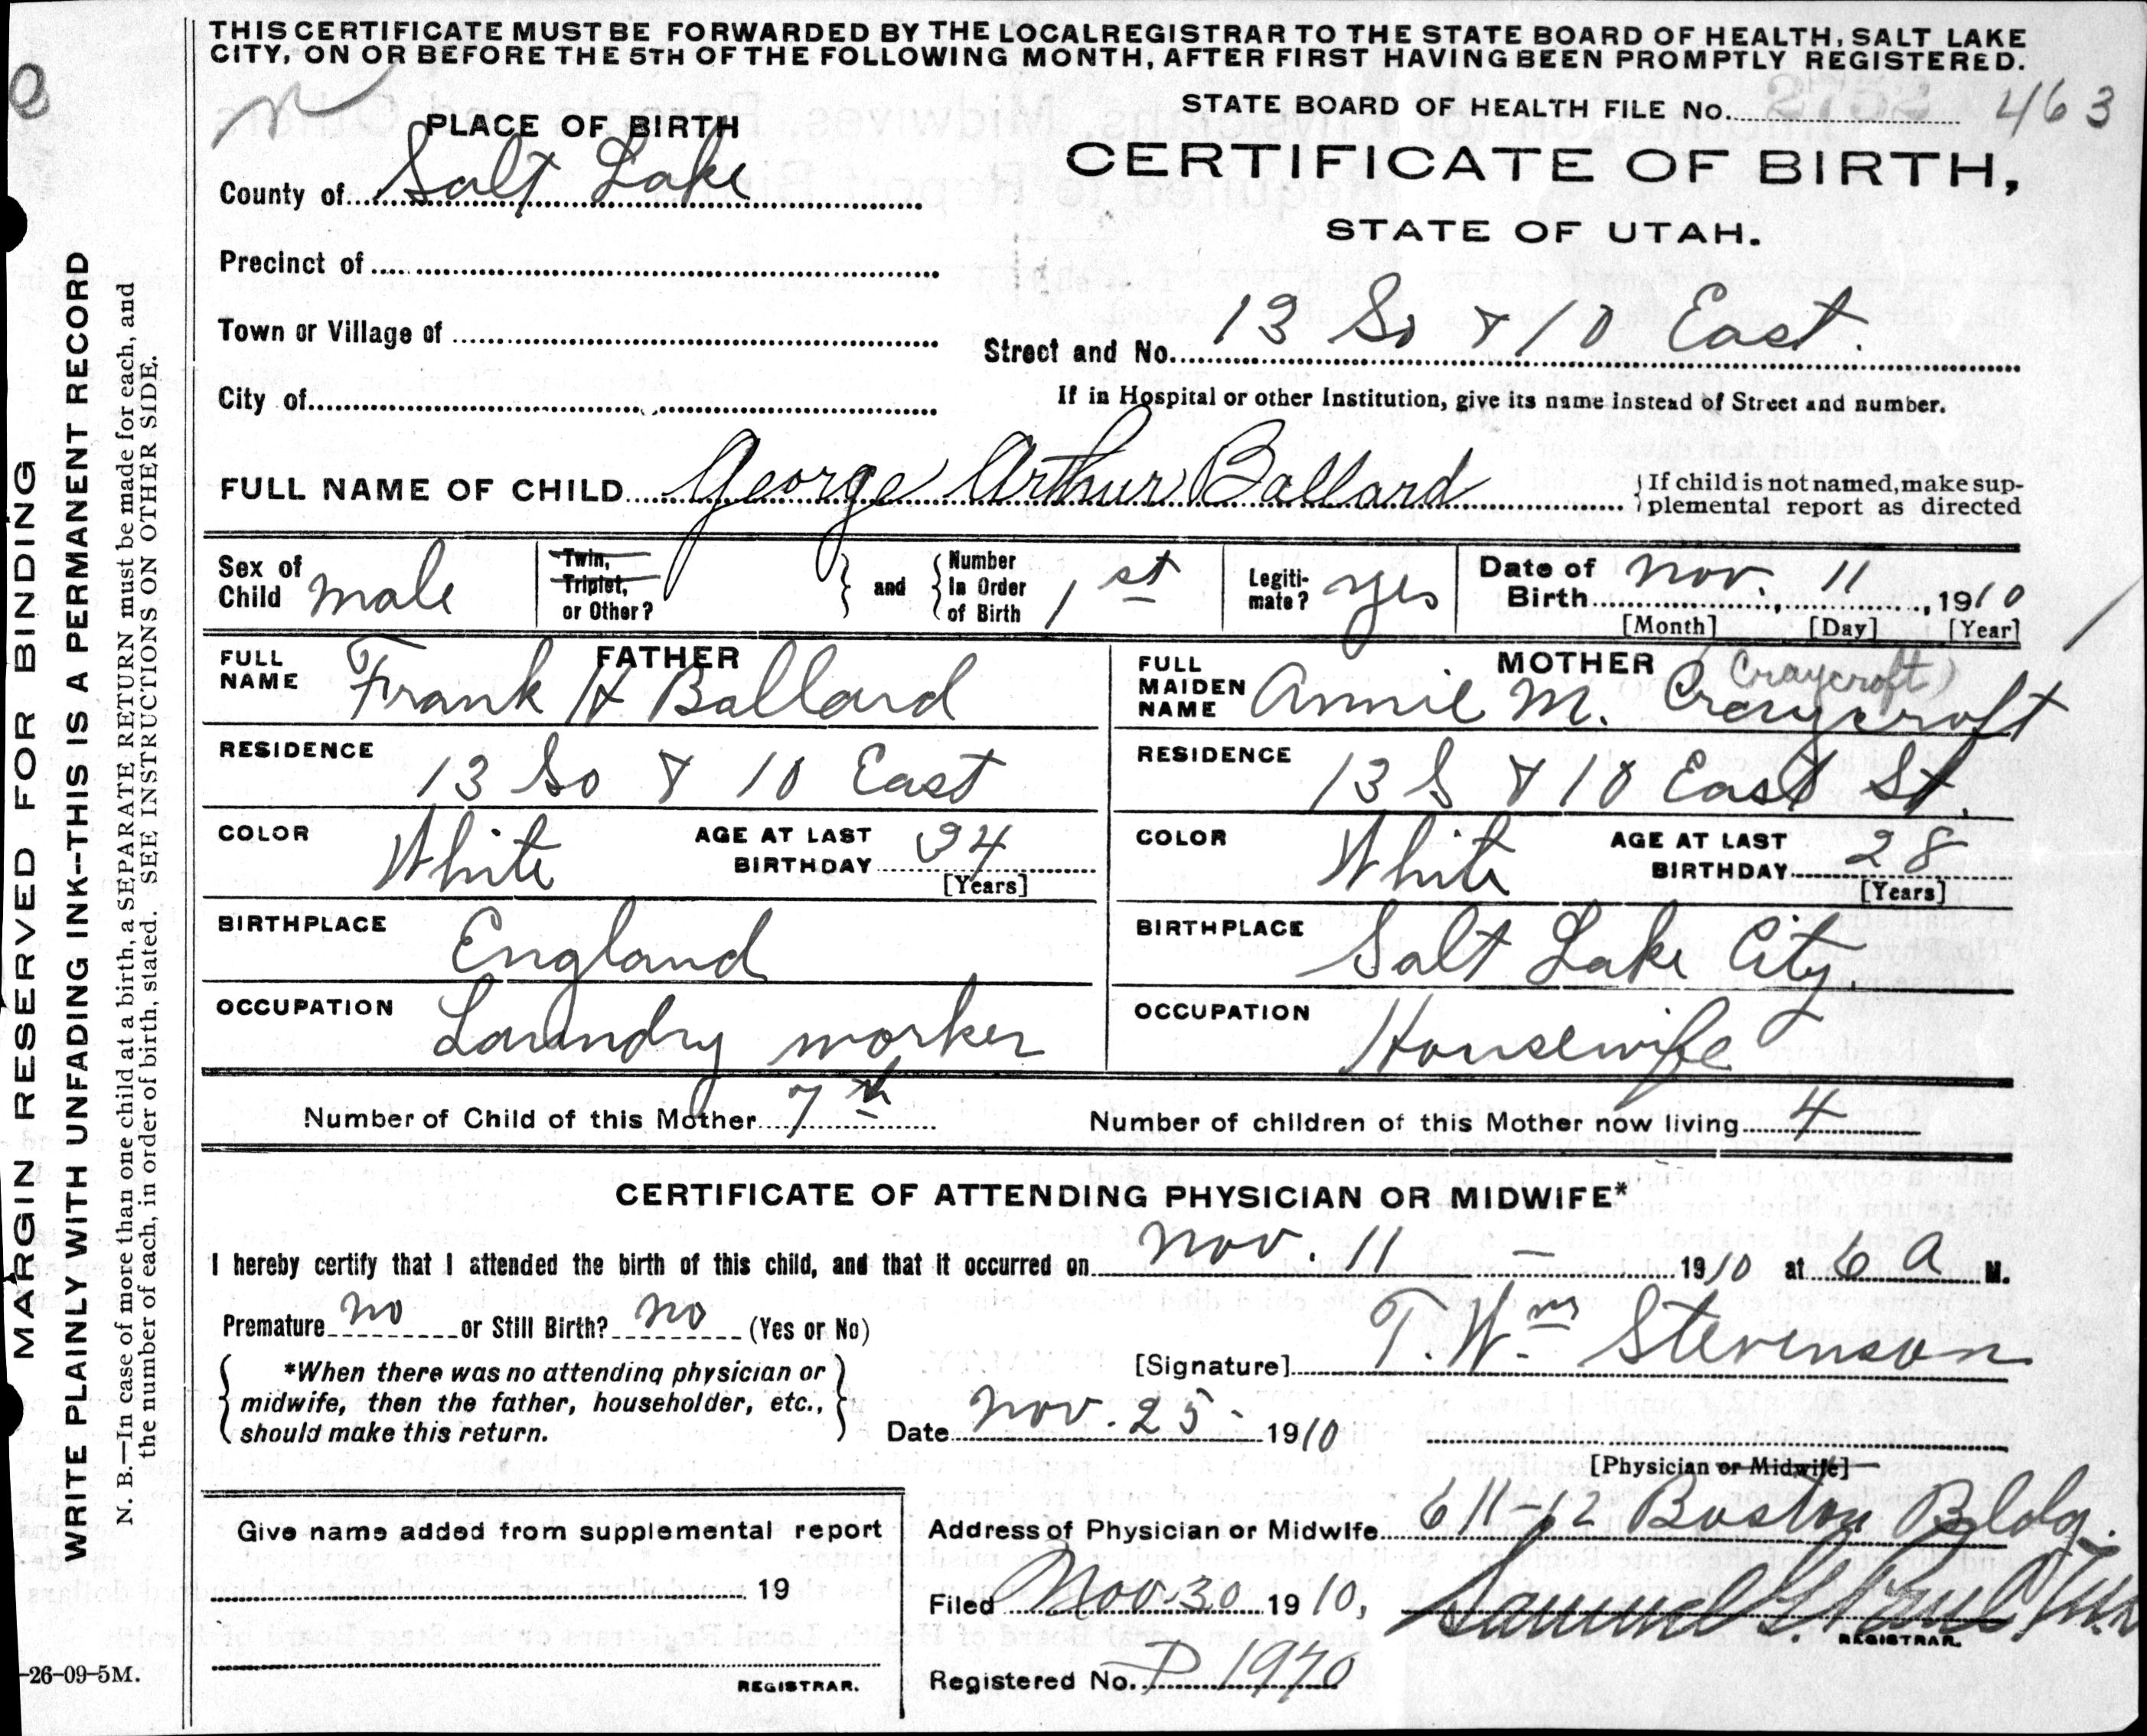 THIS CERTIFICATE MUST BE FORWARDED BY THE LOCAL REGISTRAR TO THE STATE BOARD OF HEALTH, SALT LAKE
CITY, ON OR BEFORE THE 5TH OF THE FOLLOWING MONTH, AFTER FIRST HAVING BEEN PROMPTLY REGISTERED.
STATE BOARD OF HEALTH FILE No. 463
PLACE OF BIRTH
CERTIFICATE OF BIRTH,
STATE OF UTAH.
County of Salt Lake
Precinct of
Town or Village of
Street and No. 13 So & 10 East.
City of
If in Hospital or other Institution, give its name instead of Street and number.
FULL NAME OF CHILD George Arthur Ballard
If child is not named, make sup-
plemental report as directed
Sex of Child male
Twin, Triplet, or Other?
and
Number in Order of Birth 1st
Legiti-mate? yes
Date of Birth Nov. 11, 1910
[Month] [Day] [Year]
FATHER
FULL NAME Frank H Ballard
RESIDENCE 13 So & 10 East
COLOR White
AGE AT LAST BIRTHDAY 34
[Years]
BIRTHPLACE England
OCCUPATION Laundry worker
MOTHER
(Craycroft)
FULL MAIDEN NAME Annie M. Craycroft
RESIDENCE 13 S & 10 East St.
COLOR White
AGE AT LAST BIRTHDAY 28
[Years]
BIRTHPLACE Salt Lake City
OCCUPATION Housewife
Number of Child of this Mother 7th
Number of children of this Mother now living 4
CERTIFICATE OF ATTENDING PHYSICIAN OR MIDWIFE*
I hereby certify that I attended the birth of this child, and that it occurred on Nov. 11 — 1910 at 6 A M.
Premature no or Still Birth? no (Yes or No)
*When there was no attending physician or
midwife, then the father, householder, etc.,
should make this return.
[Signature] T. Wm Stevenson
Date Nov. 25 1910
[Physician or Midwife]
Give name added from supplemental report
19
REGISTRAR.
Address of Physician or Midwife 611-12 Boston Bldg.
Filed Nov 30 1910, Samuel G. Paul
REGISTRAR.
Registered No. P 1970
MARGIN RESERVED FOR BINDING
WRITE PLAINLY WITH UNFADING INK--THIS IS A PERMANENT RECORD
N. B.—In case of more than one child at a birth, a SEPARATE RETURN must be made for each, and
the number of each, in order of birth, stated. SEE INSTRUCTIONS ON OTHER SIDE.
-26-09-5M.